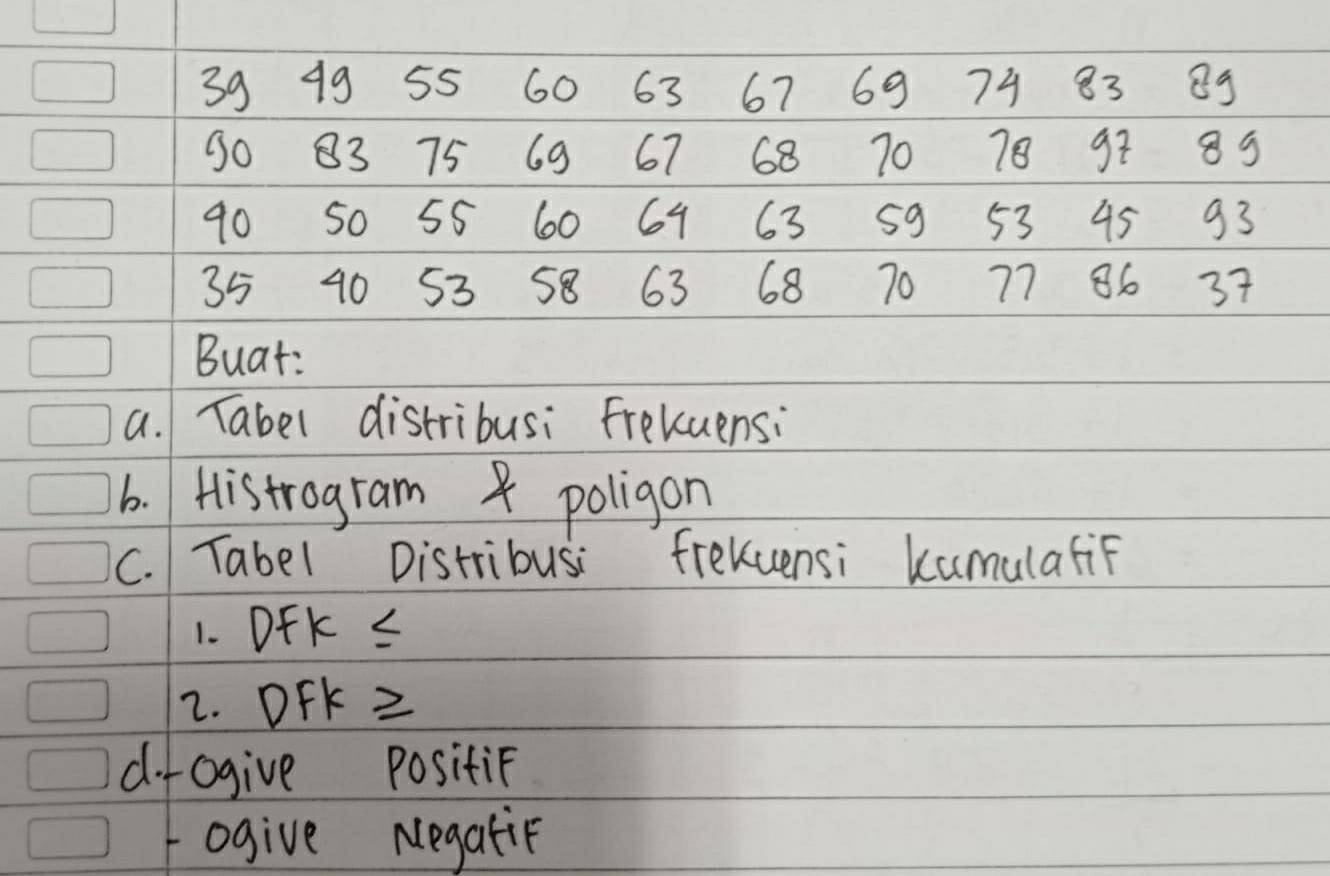 39 49 55 60 63 67 69 74 83 89
90 83 75 69 67 68 70 78 97 89
40 50 55 60 64 63 59 53 45 93
35 40 53 58 63 68 70 77 86 37
Buat:
a. Tabel distribusi Frekuensi
b. Histrogram & poligon
C. Tabel Distribusi frekuensi kumulatif
1. DFK ≤
2. DFK ≥
d. - ogive Positif
- ogive Negatif